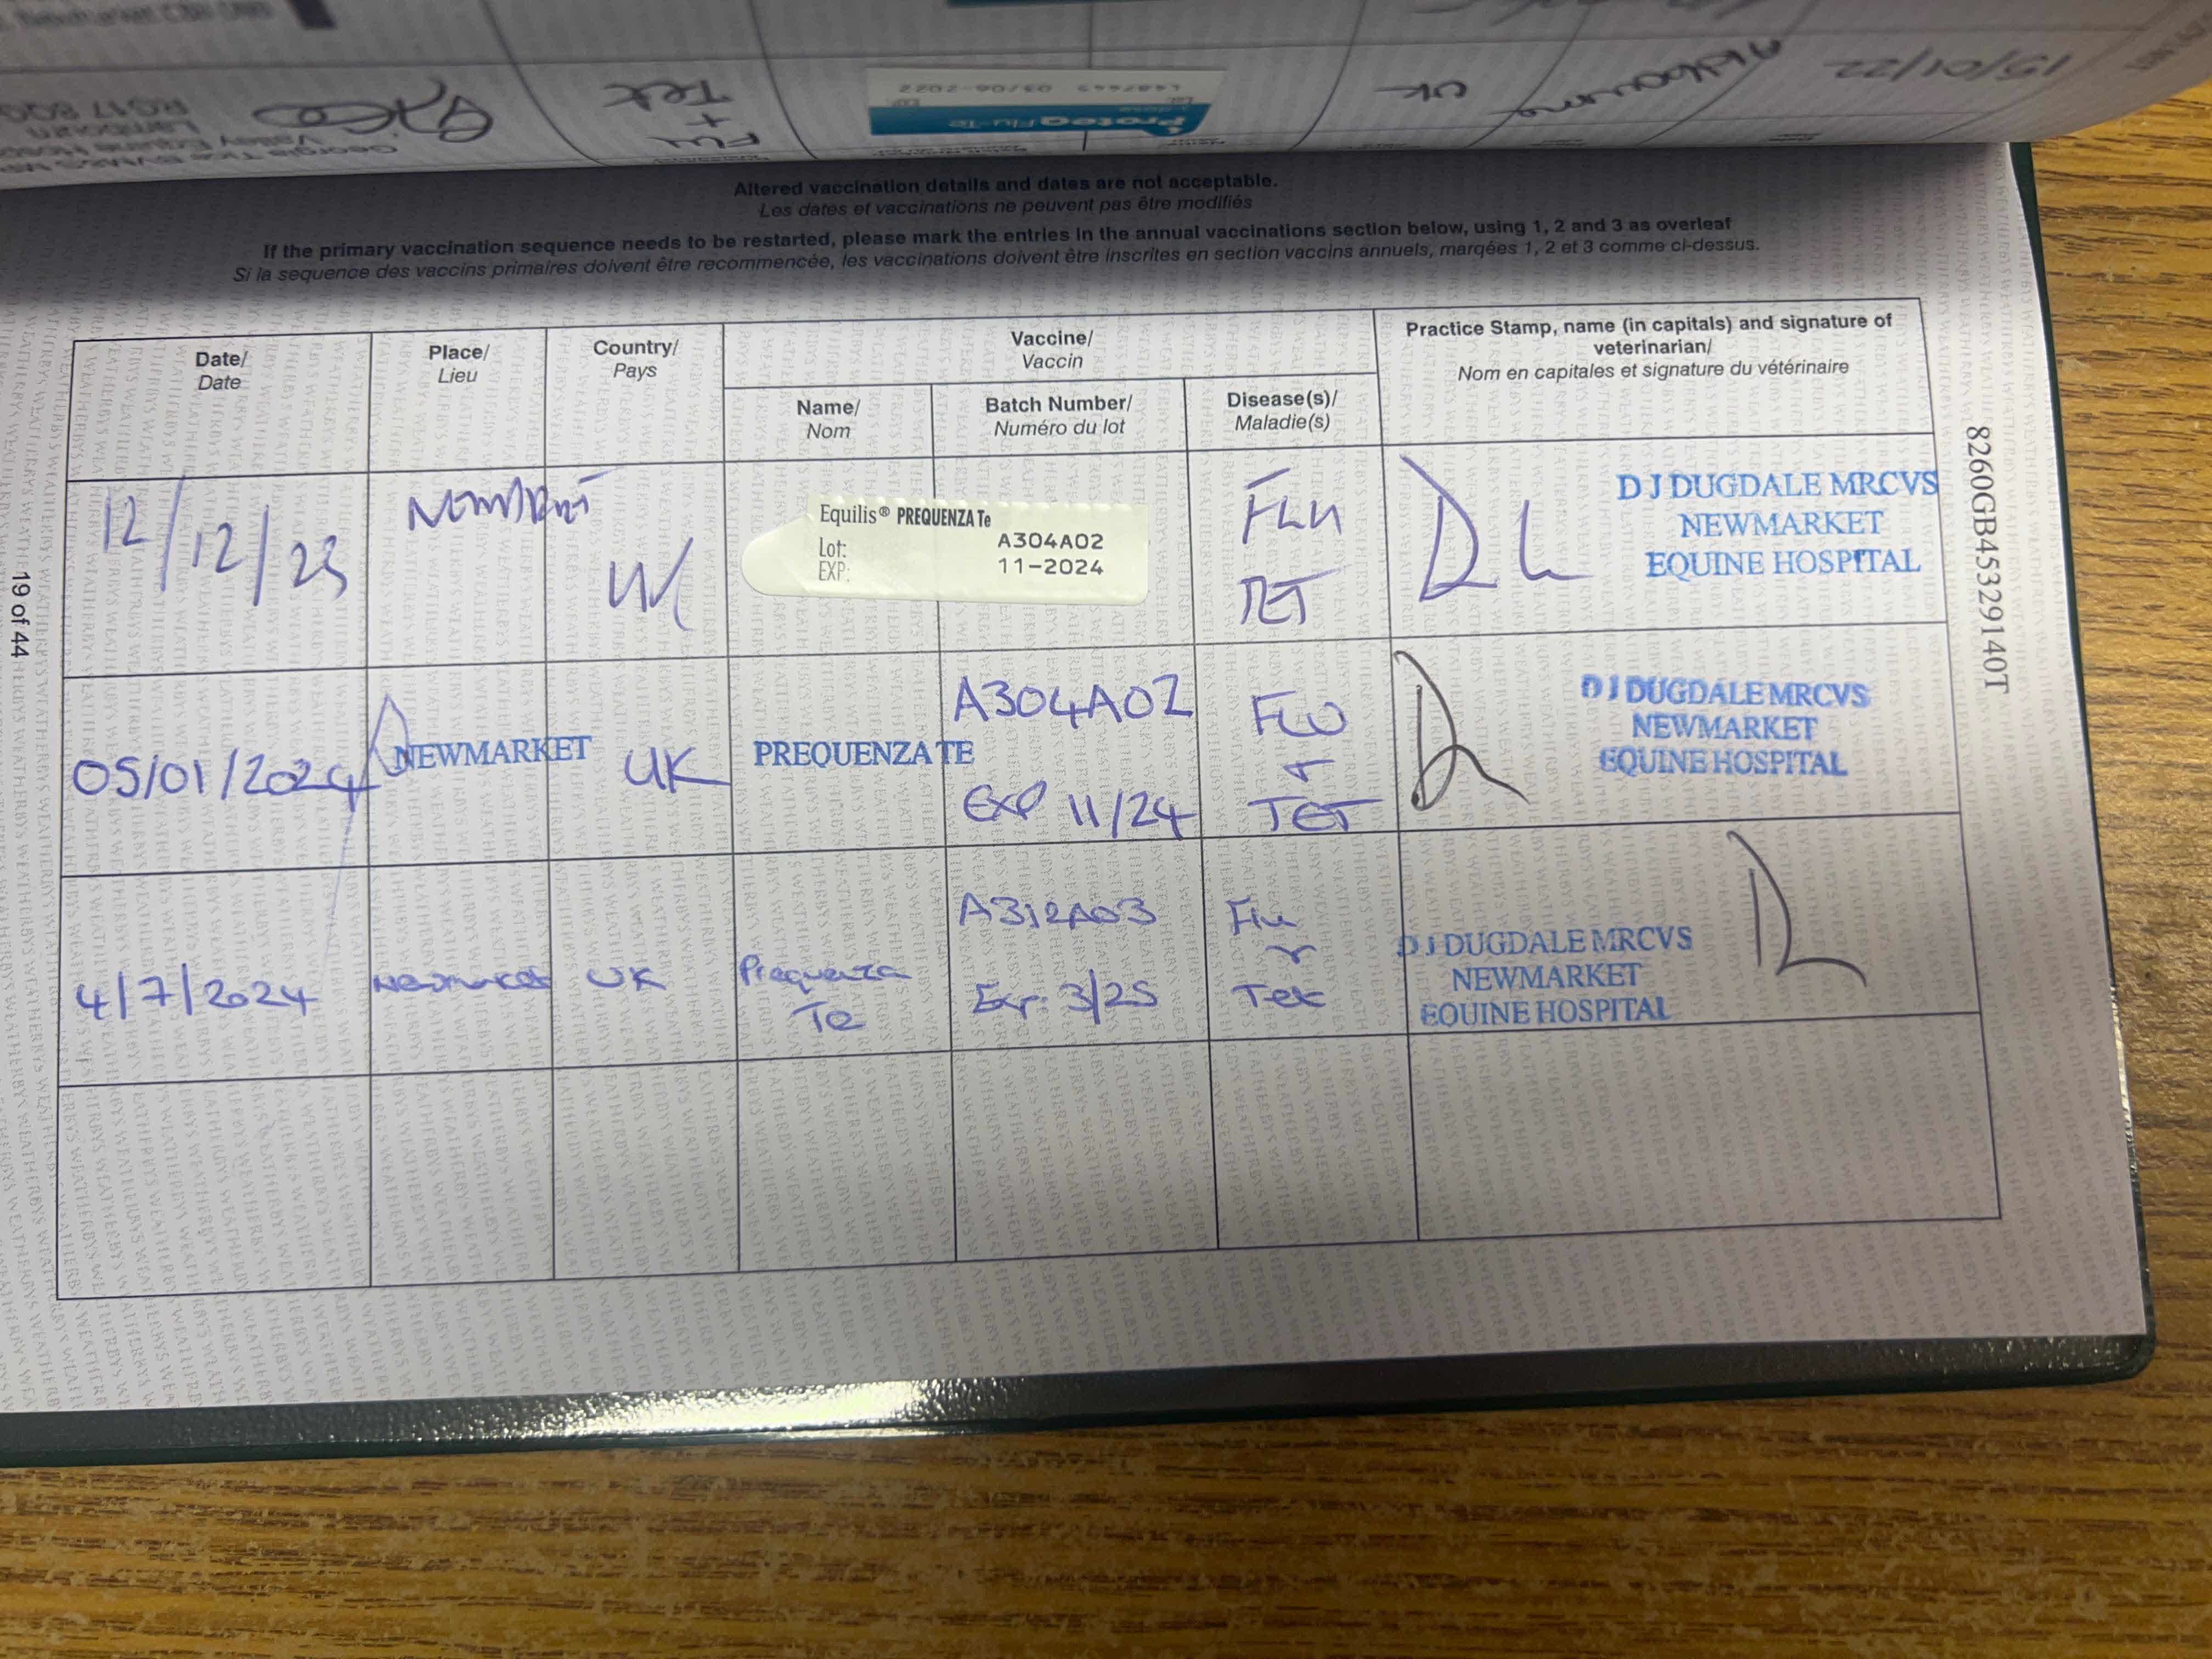 15/01/22
UK
Proteq Flu-Te
L487662 03/06-2022
Flu
+
Tet
Georgie Tice BVM&S
Valley Equine Hosp
Lambourn
RG17 8QG
Altered vaccination details and dates are not acceptable.
Les dates et vaccinations ne peuvent pas être modifiés
If the primary vaccination sequence needs to be restarted, please mark the entries in the annual vaccinations section below, using 1, 2 and 3 as overleaf
Si la sequence des vaccins primaires doivent être recommencée, les vaccinations doivent être inscrites en section vaccins annuels, marqées 1, 2 et 3 comme ci-dessus.
Date/
Date
Place/
Lieu
Country/
Pays
Vaccine/
Vaccin
Name/
Nom
Batch Number/
Numéro du lot
Disease(s)/
Maladie(s)
Practice Stamp, name (in capitals) and signature of
veterinarian/
Nom en capitales et signature du vétérinaire
12/12/23
Newmarket
UK
Equilis® PREQUENZA Te
Lot: A304A02
EXP: 11-2024
FLU
TET
D J DUGDALE MRCVS
NEWMARKET
EQUINE HOSPITAL
05/01/2024
NEWMARKET
UK
PREQUENZA TE
A304A02
EXP 11/24
FLU
+
TET
D J DUGDALE MRCVS
NEWMARKET
EQUINE HOSPITAL
4/7/2024
Newmarket
UK
Prequenza
Te
A312A03
Exp. 3/25
Flu
+
Tet
D J DUGDALE MRCVS
NEWMARKET
EQUINE HOSPITAL
19 of 44
8260GB45329140T